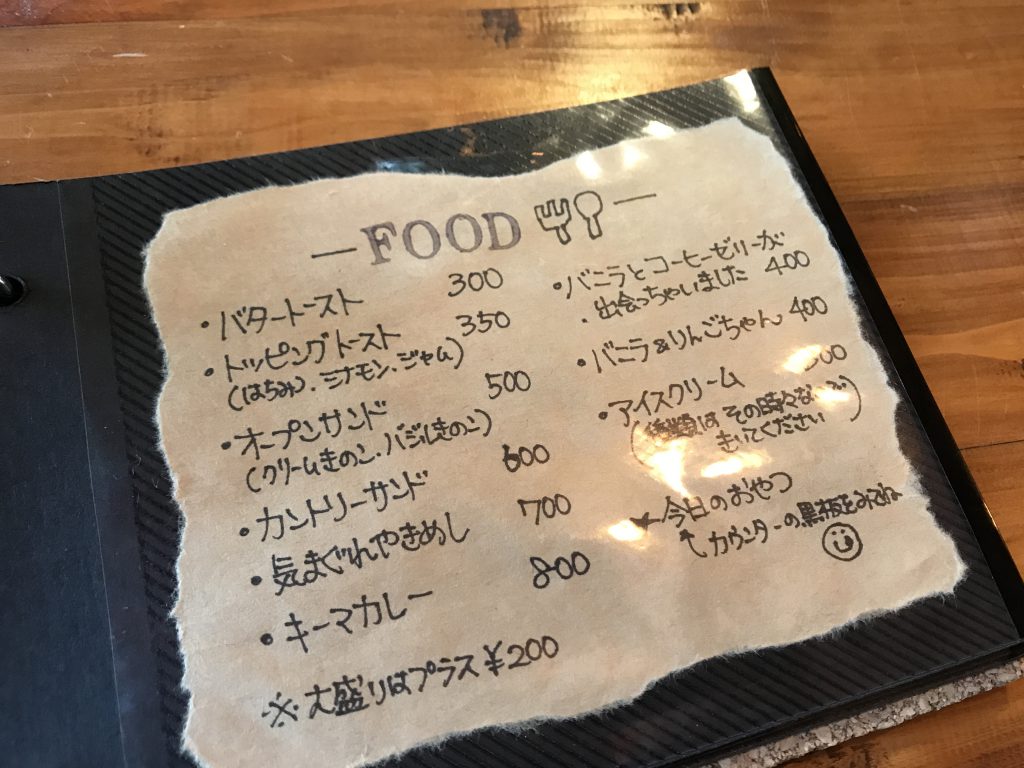 FOOD
・バタートースト 300
・トッピングトースト 350
(はちみつ、シナモン、ジャム)
・オープンサンド 500
(クリームきのこ、バジルきのこ)
・カントリーサンド 600
・気まぐれやきめし 700
・キーマカレー 800
※大盛りはプラス¥200
・バニラとコーヒーゼリーが
出会っちゃいました 400
・バニラ&りんごちゃん 400
・アイスクリーム
(種類は その時々な
きいてください)
★今日のおやつ
カウンターの黒板をみてね